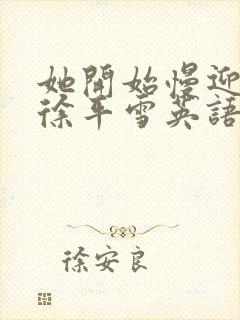 她開始慢迎
徐平雪英語
徐安良